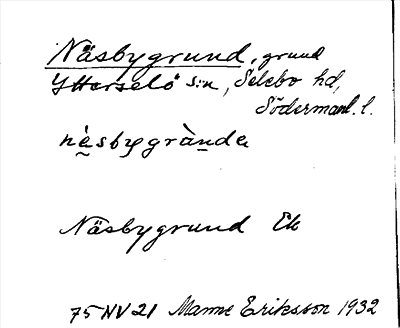 Näsbygrund, grund
Ytterselö s:n, Selebo hd,
Södermanl. l.
nèsbygràndę
Näsbygrund Ek
75 NV 21 Manne Eriksson 1932